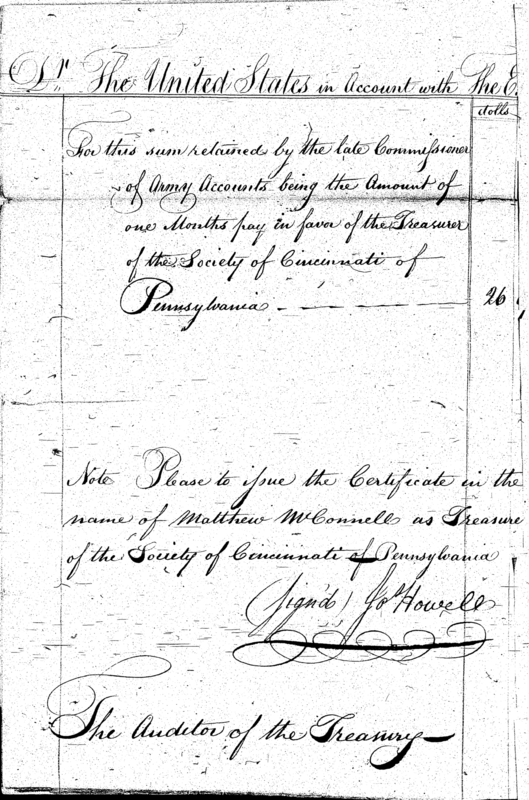 Dr The United States in Account with The E
dolls
For this sum retained by the late Commissioner
of Army Accounts being the Amount of
one Months pay in favor of the Treasurer
of the Society of Cincinnati of
Pennsylvania - - - - 26
Note Please to issue the Certificate in the
name of Matthew McConnell as Treasure
of the Society of Cincinnati of Pennsylvania
(Sign'd) Jos Howell
The Auditor of the Treasury